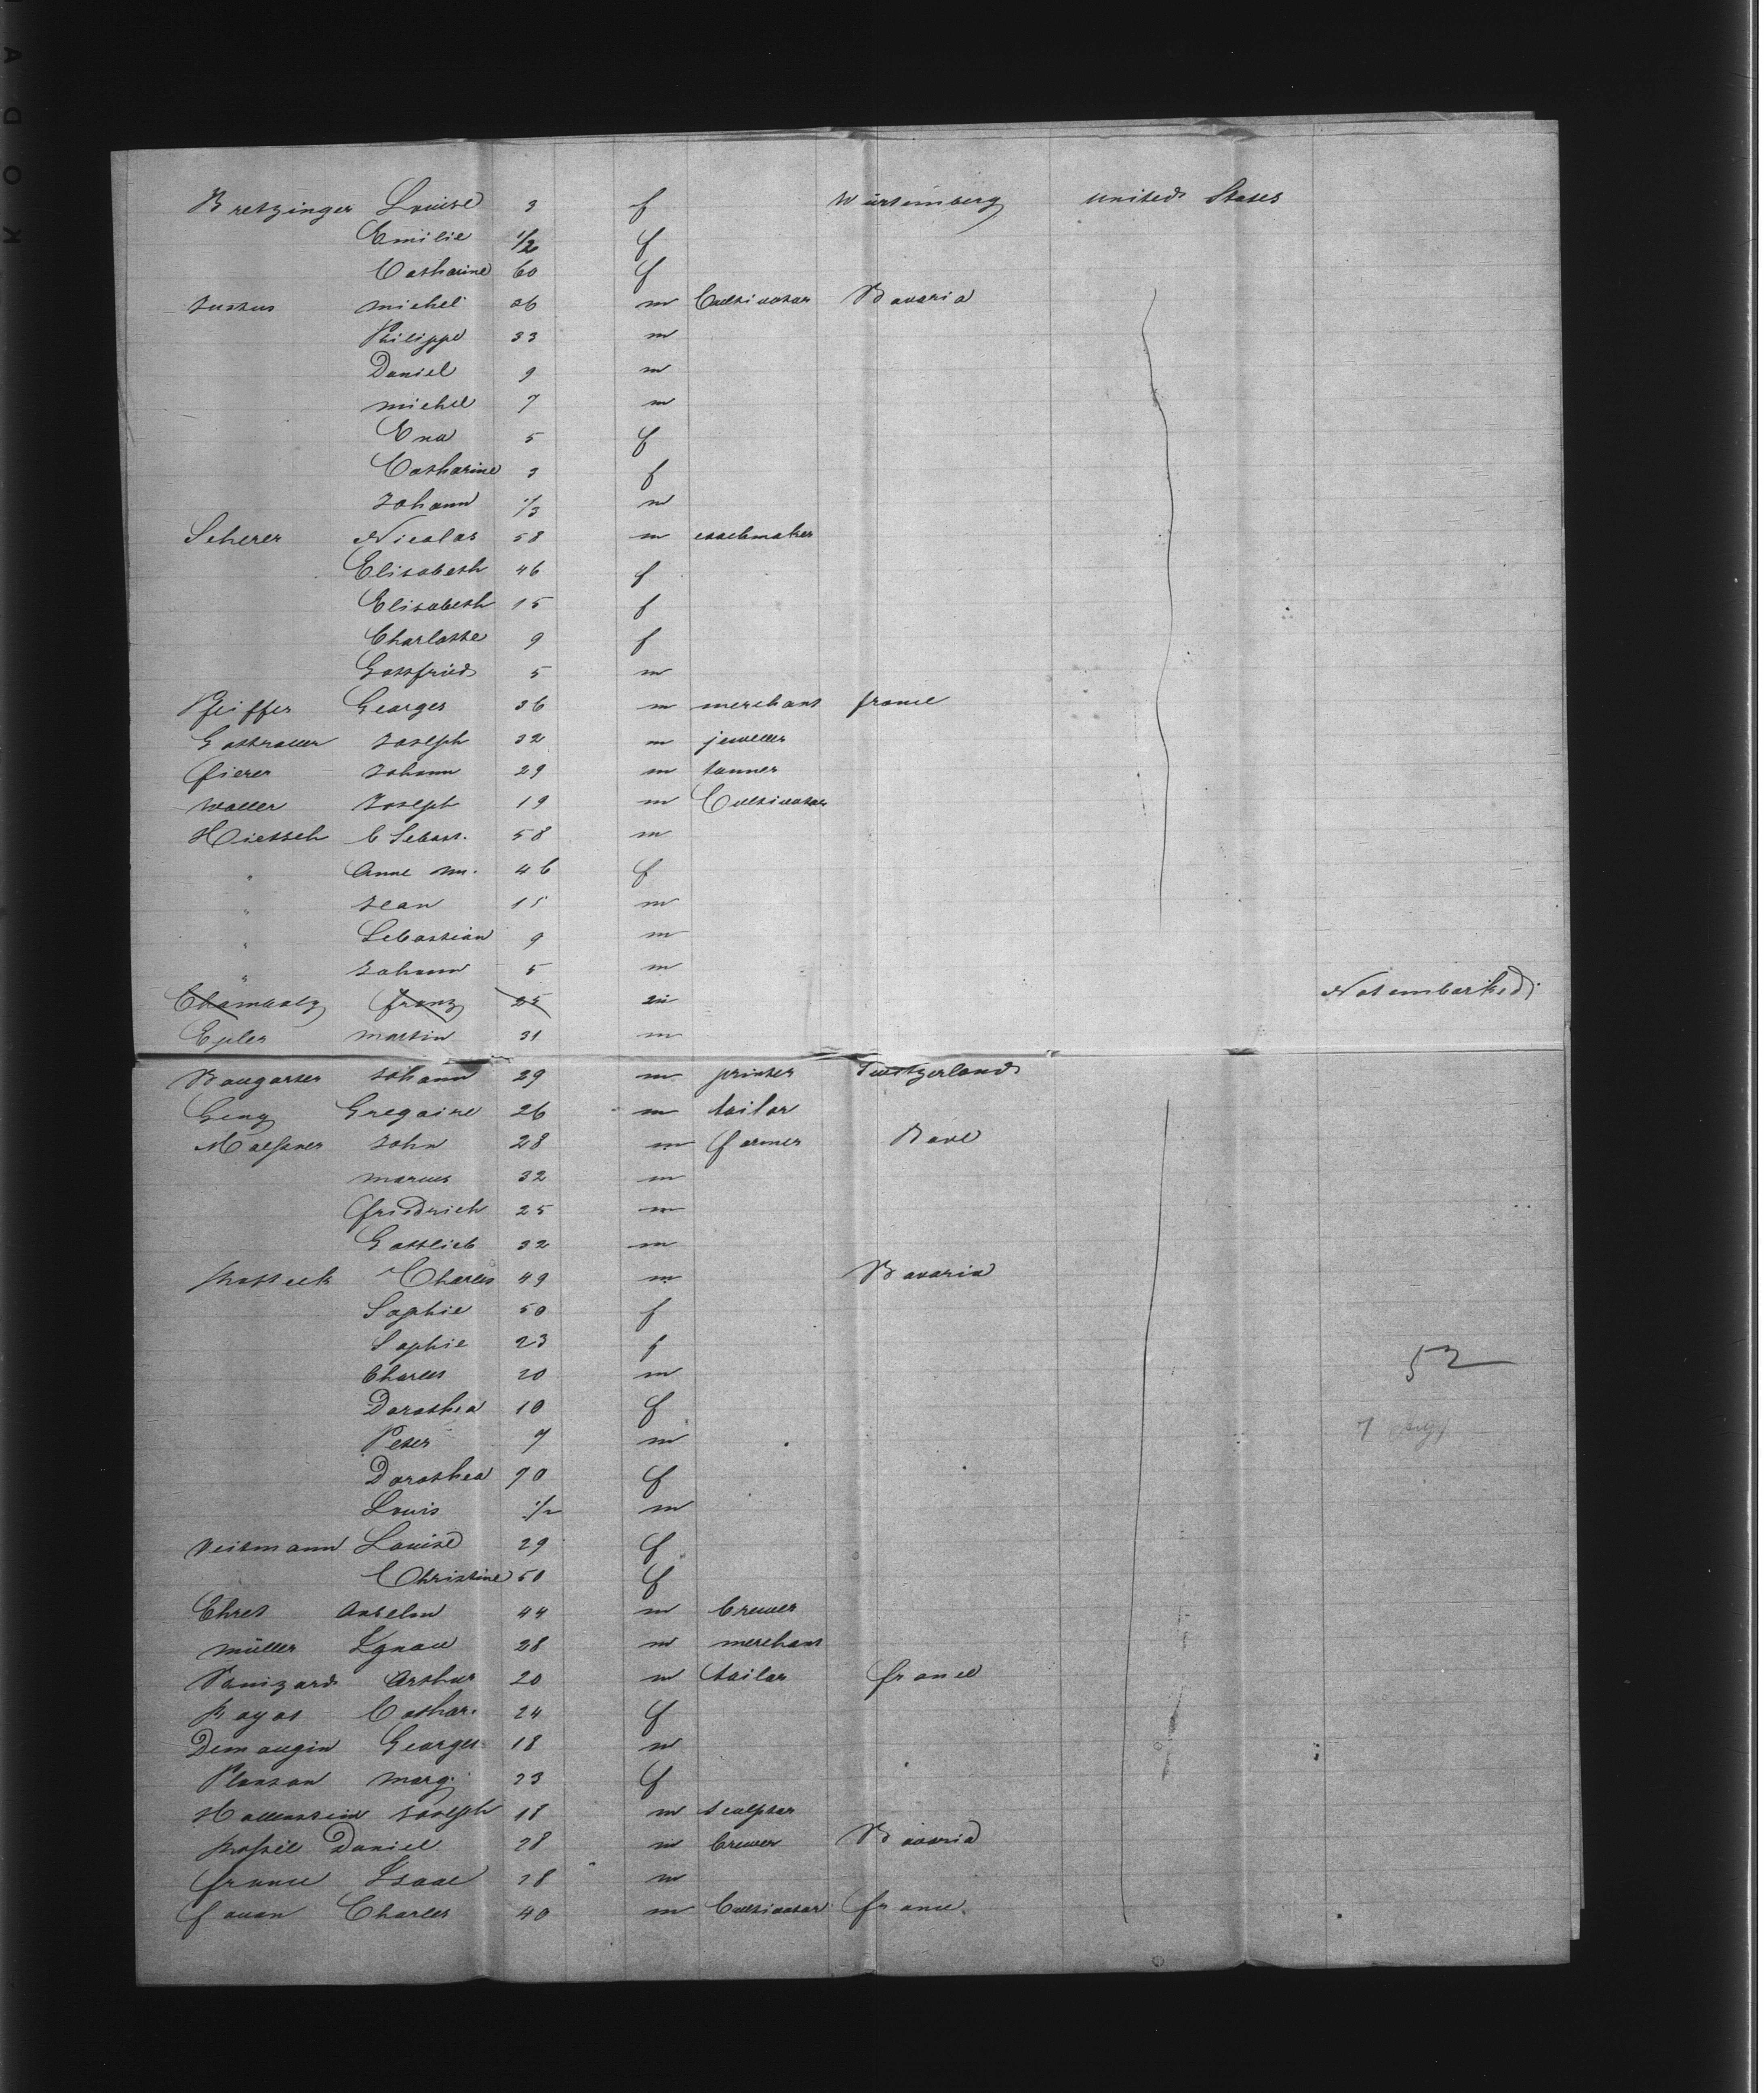 Bretzinger Louise 3 f Würtemberg united States
Emilie 1/2 f
Catharine 60 f
Justus michel 36 m Cultivator Bavaria
Philippe 33 m
Daniel 9 m
michel 7 m
Eva 5 f
Catharine 3 f
Johann 1/3 m
Scherer Nicolas 58 m coachmaker
Elisabeth 46 f
Elisabeth 15 f
Charlotte 9 f
Gottfried 5 m
Pfeiffer Georges 36 m merchant france
Joseph 32 m jeweller
fierer Johann 29 m tanner
Waller Joseph 19 m Cultivator
C Sebast. 58 m
" Anne m. 46 f
" Jean 15 m
" Sebastian 9 m
" Johann 5 m
franz 25 m Not embarked
Epler martin 31 m
Baugarter Johann 29 m printer Switzerland
Geny Gregoire 26 m tailor
John 28 m farmer
marcus 32 m
friedrich 25 m
Gottlieb 32 m
Charles 49 m Bavaria
Sophie 50 f
Sophie 23 f
Charles 20 m
52
Dorothea 10 f
Peter 7 m
7
Dorothea 90 f
Louis 1/2 m
Veitmann Louise 29 f
Christine 50 f
Ehret Anselm 44 m brewer
müller Ignace 28 m merchant
Arthur 20 m tailor france
Cathar. 24 f
Demaugin Georges 18 m
Plonson marg. 23 f
Hallenstein Joseph 18 m sculptor
Daniel 28 m brewer Bavaria
france Isaac 28 m
favan Charles 40 m Cultivator france.